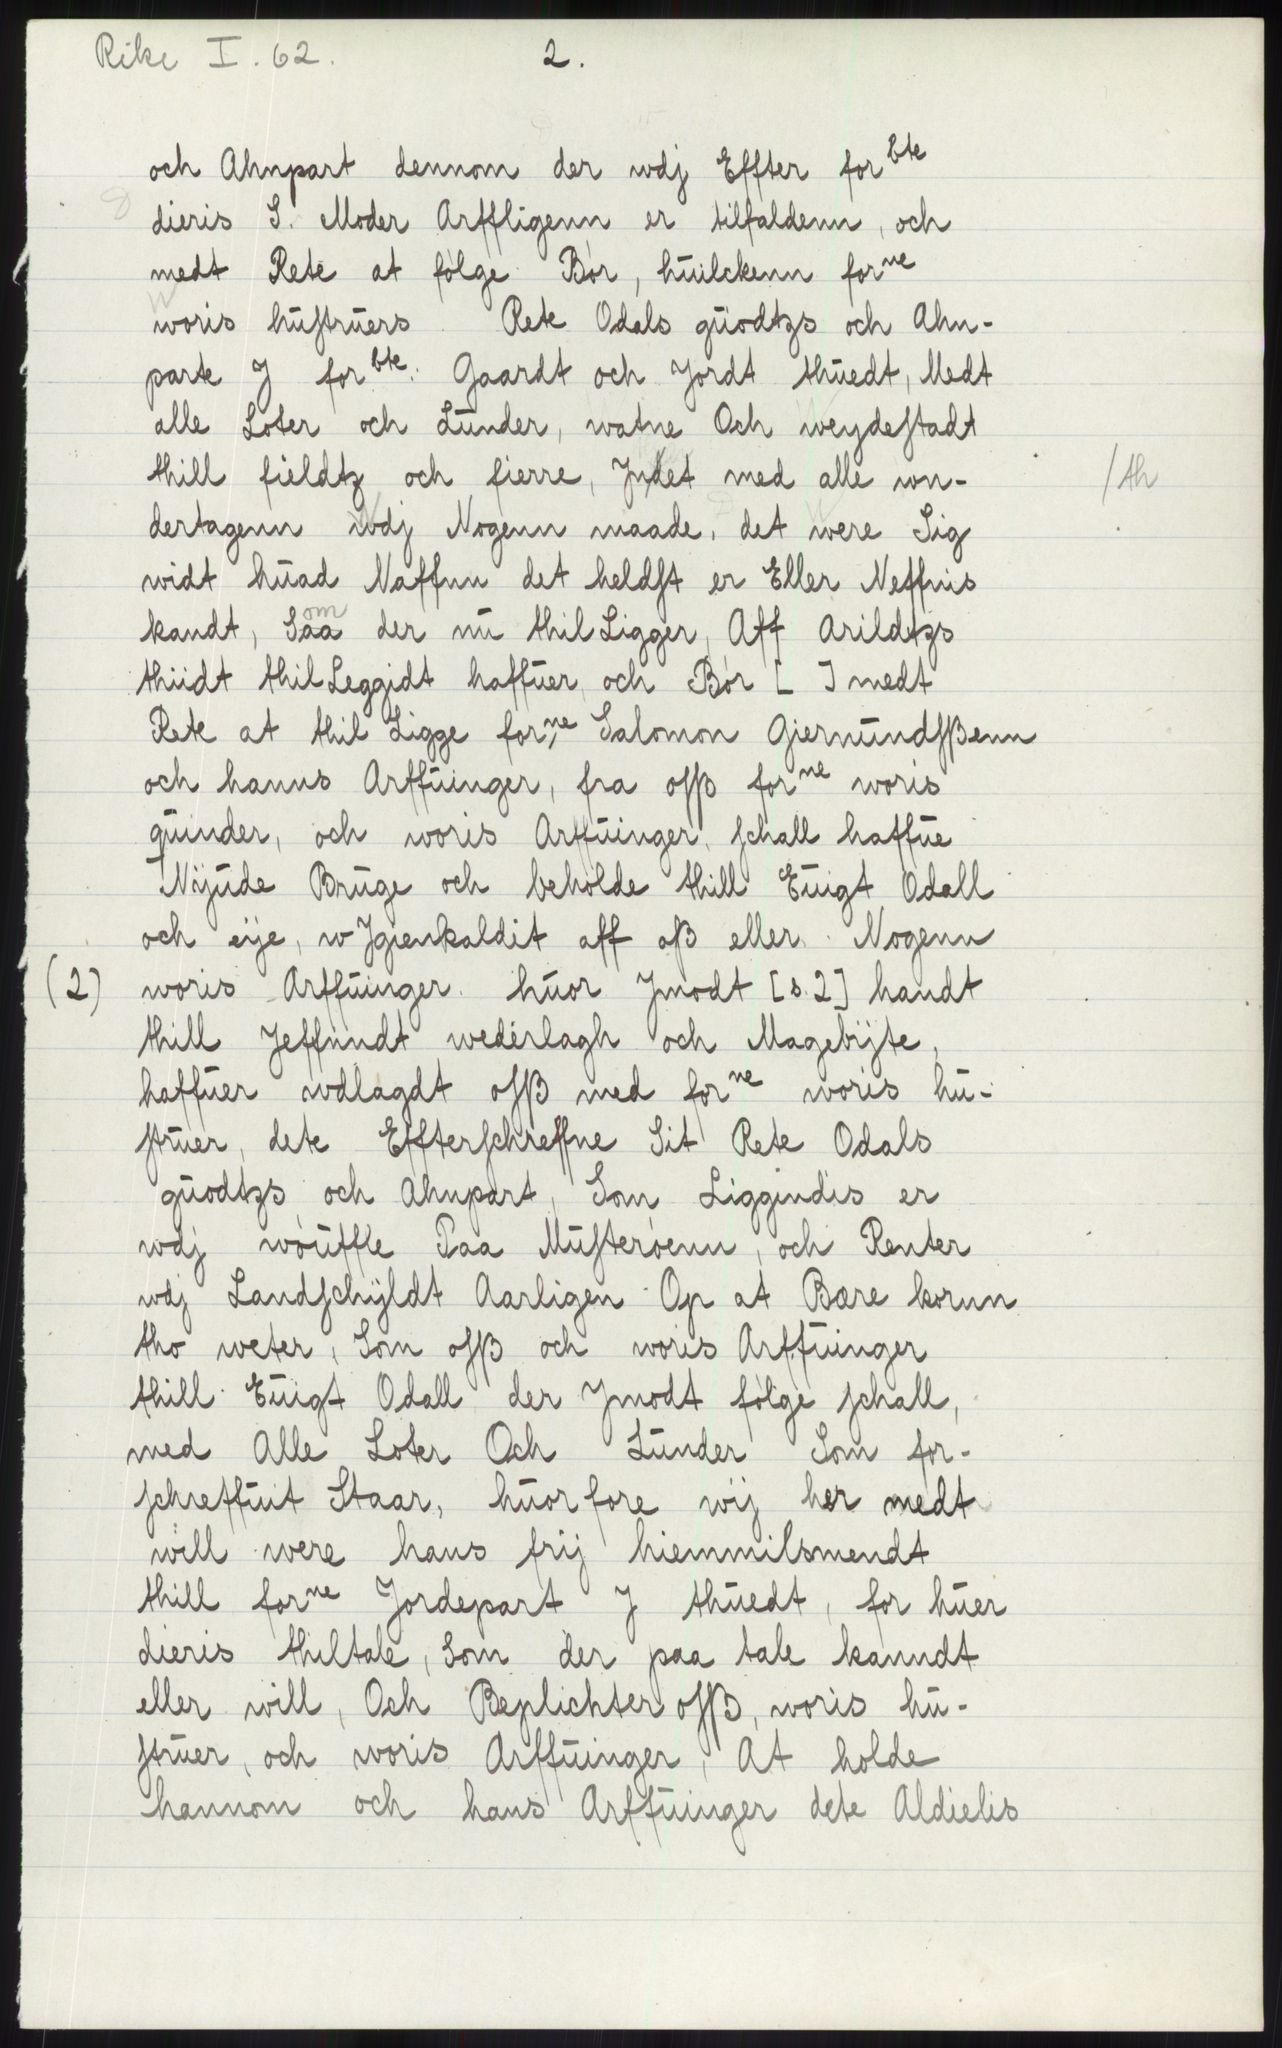 Rike I. 62.
2.
och Ahnpart dennom der wdj Effter forbte
dieris S. Moder Arffligenn er tilfaldenn, och
medt Rete at følge Bør, huilckenn forne
woris hustruers Rete Odals guodtzs och Ahn-
parte J forbte. Gaardt och Jordt thuedt, Medt
alle Loter och Lunder, watne Och weydestadt
thill fieldtz och fierre, Jndet med alle wn-
/th
dertagenn wdj Nogenn maade, det were Sig
widt huad Naffnn det heldst er Eller Neffnis
kandt, Saa om der nu thil Ligger, Aff arildtzs
thiidt thil Leggidt haffuer, och Bør [ ] medt
Rete at thil Ligge forne Salomon Giermundsßenn
och hanns Arffuinger, fra osß forne woris
quinder, och woris Arffuinger, schall haffue
Nijude Bruge och beholde thill Euigt Odall
och eije, w Jgienkaldit aff oß eller Nogenn
(2) woris Arffuinger. huor Jmodt [s. 2] handt
thill Jeffnndt wederlagh och Magebijte,
haffuer wdlagdt osß med forne woris hu-
struer, dete Effterschreffne Sit Rete Odals
guodtzs och Ahnpart, Som Liggindis er
wdj wouffle Paa Musterøenn, och Renter
wdj Landschyldt Aarligen Op at Bære kornn
tho weter, Som osß och woris Arffuinger
thill Euigt Odall der Jmodt følge schall,
med Alle Loter Och Lunder Som for-
schreffuit Staar, huorfore wij her medt
will were hans frij hiemmilsmendt
thill forne Jordepart J thuedt, for huer
dieris thiltale, Som der paa tale kanndt
eller will, Och Beplichter osß, woris hu-
struer, och woris Arffuinger, At holde
hannom och hans Arffuinger dete Aldielis